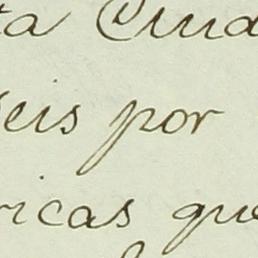 ta Ciud
seis por
ricas que